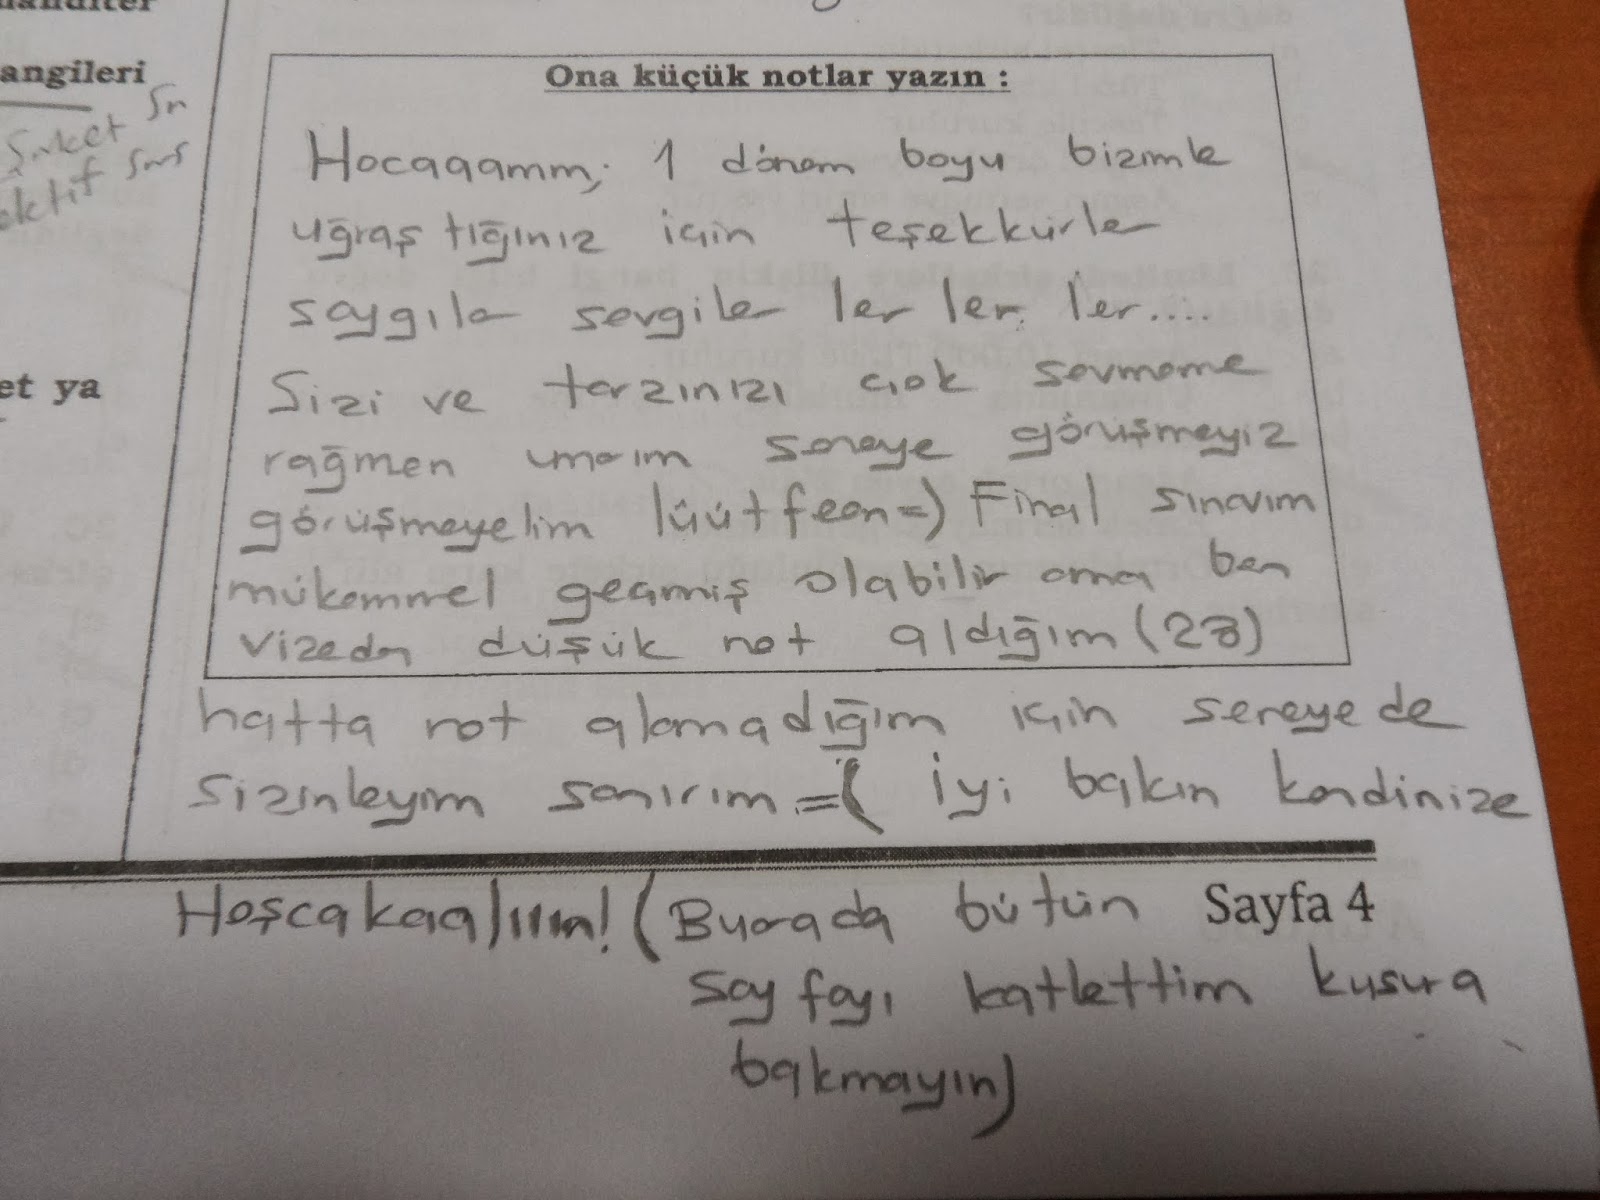 angileri
Şirket Sn
ektif sms
et ya
Ona küçük notlar yazın :
Hocaaamm; 1 dönem boyu bizimle
uğraştığınız için teşekkürler
saygılar sevgiler ler ler ler....
Sizi ve tarzınızı çok sevmeme
rağmen umarım seneye görüşmeyiz
görüşmeyelim lüütfeen=) Final sınavım
mükemmel geçmiş olabilir ama ben
vizeden düşük not aldığım (28)
hatta not alamadığım için seneye de
sizinleyim sanırım =( İyi bakın kendinize
Hoşcakaalıııın! (Burada bütün
Sayfa 4
sayfayı katlettim kusura
bakmayın)